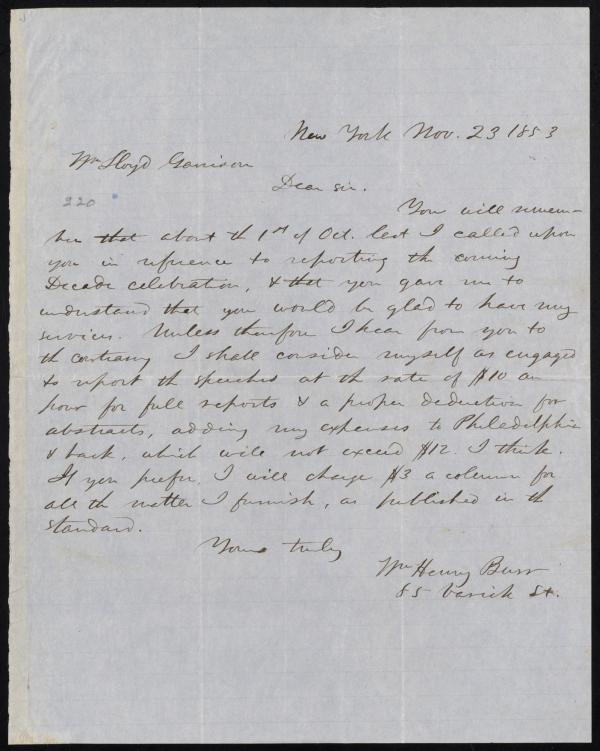 New York Nov. 23 1853
Wm Lloyd Garrison
Dear sir.
220
You will remem-
ber that about th 1st of Oct. last I called upon
you in refrence to reporting th coming
Decade celebration, & that you gave me to
understand that you would be glad to have my
services. Unless therefore I hear from you to
th contrary I shall consider myself as engaged
to report th speeches at th rate of $10 an
hour for full reports & a proper deduction for
abstracts, adding my expenses to Philadelphia
& back, which will not exceed $12. I think.
If you prefer, I will charge $3 a column for
all th matter I furnish, as published in th
Standard.
Yours truly
Wm Henry Burr
85 Varick St.